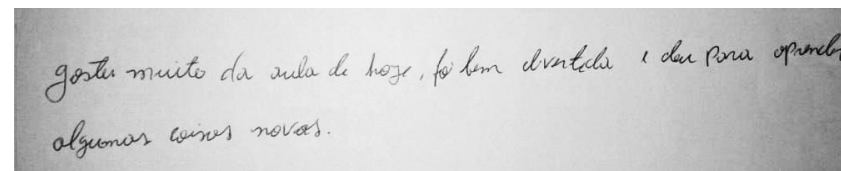 gostei muito da aula de hoje, foi bem divertida e deu para aprender
algumas coisas novas.